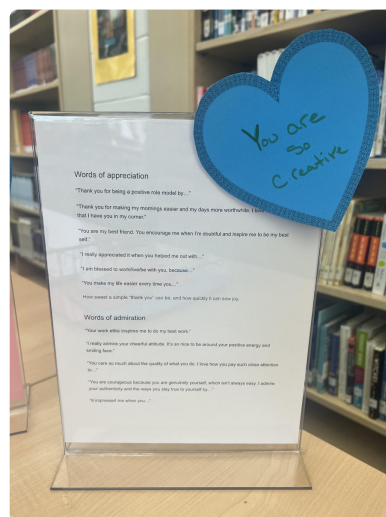 You are
so
Creative
Words of appreciation
"Thank you for being a positive role model by…"
"Thank you for making my mornings easier and my days more worthwhile. I love
that I have you in my corner."
"You are my best friend. You encourage me when I'm doubtful and inspire me to be my best
self."
"I really appreciated it when you helped me out with…"
"I am blessed to work/live/be with you, because…"
"You make my life easier every time you…"
How sweet a simple "thank you" can be, and how quickly it can sow joy.
Words of admiration
"Your work ethic inspires me to do my best work."
"I really admire your cheerful attitude. It's so nice to be around your positive energy and
smiling face."
"You care so much about the quality of what you do. I love how you pay such close attention
to…"
"You are courageous because you are genuinely yourself, which isn't always easy. I admire
your authenticity and the ways you stay true to yourself by…"
"It impressed me when you…"